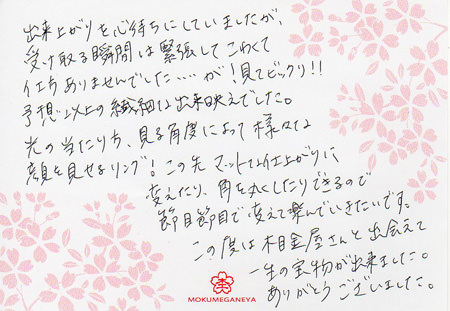 出来上がりを心待ちにしていましたが、
受け取る瞬間は緊張してこわくて
仕方ありませんでした….が！見てビックリ!!
予想以上の繊細な出来映えでした。
光の当たり方、見る角度によって様々な
顔を見せるリング！この先マットな仕上がりに
変えたり、角を丸くしたりできるので
節目節目で変えて楽しんでいきたいです。
この度は木目金屋さんと出会えて
一生の宝物が出来ました。
ありがとうございました。
MOKUMEGANEYA